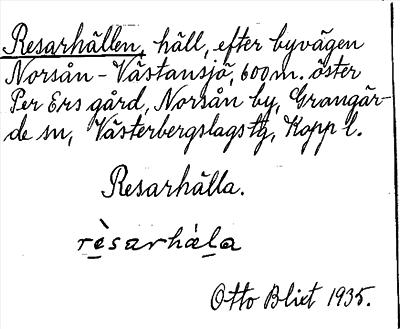 Resarhällen, häll, efter byvägen
Norsån - Västansjö, 600 m. öster
Per Ers gård, Norsån by, Grangär-
de sn, Västerbergslags tg, Kopp l.
Resarhälla.
rèsarhála
Otto Blixt 1935.